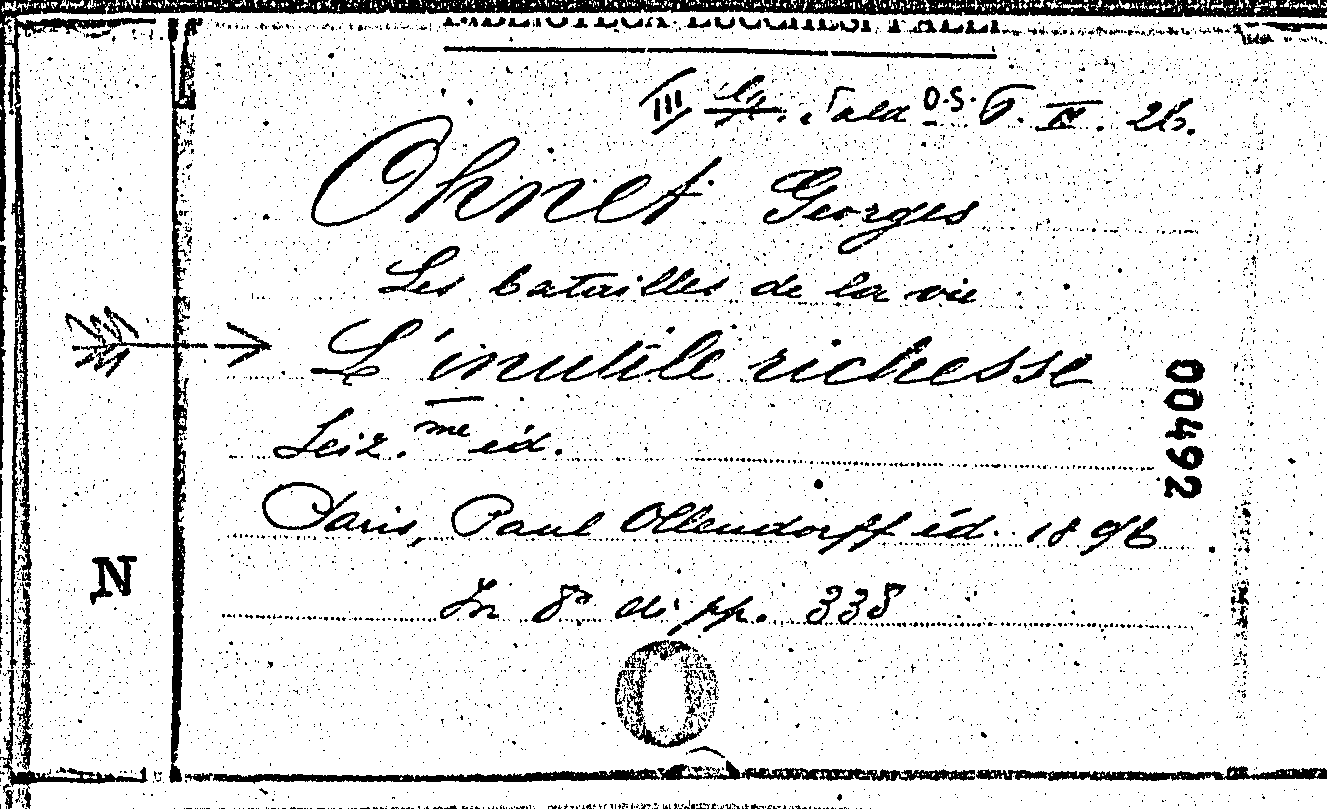 BIBLIOTECA LUCCHESI PALLI
III Sala O.S. T. IV. 26.
Ohnet Georges
Les batailles de la vie
L'inutile richesse
Seiz.me éd.
Paris, Paul Ollendorff éd. 1896
In 8° di pp. 338
00492
N